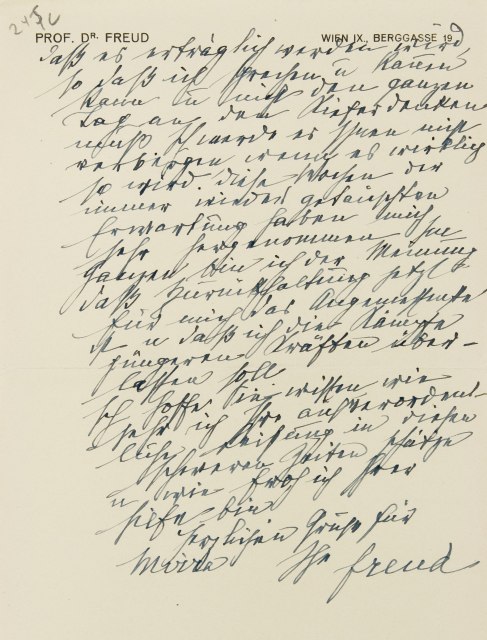 PROF. DR. FREUD
WIEN IX., BERGGASSE 19
daß es erträglich werden wird,
so daß ich sprechen u kauen
kann u nicht den ganzen
Tag an den Kiefer denken
muß. Ich werde es Ihnen nicht
verbergen wenn es wirklich
so wird. Diese Wochen der
immer wieder getäuschten
Erwartung haben mich
sehr hergenommen. Im
Ganzen bin ich der Meinung
daß Zurückhaltung jetzt
für mich das Angemessenste
ist u daß ich die Kämpfe
jüngeren Kräften über-
lassen soll.
Ich hoffe Sie wissen wie
sehr ich Ihre außerordent-
liche Leistung in diesen
schweren Zeiten schätze
u wie froh ich Ihrer
Hilfe bin
herzlichen Gruß für
Ihr Freud